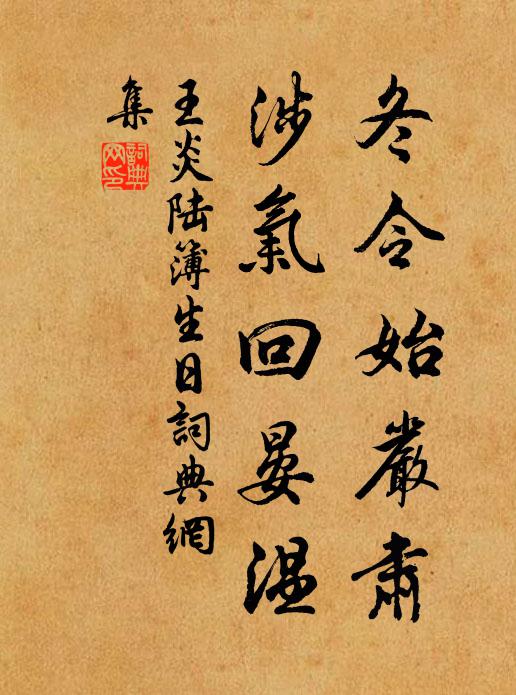 冬令始嚴肅
涉氣回晏溫
王炎陸簿生日詞典網
集
詞典網印